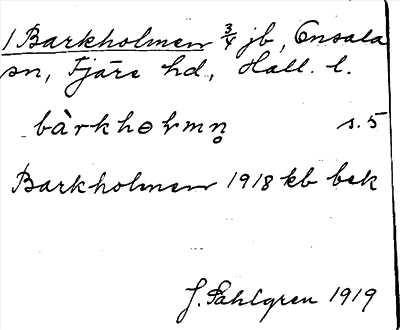 1 Barkholmen 3/4 jb, Onsala
sn, Fjäre hd., Hall. l.
bàrkhołmn̥ s. 5
Barkholmen 1918 kb bek
J. Sahlgren 1919